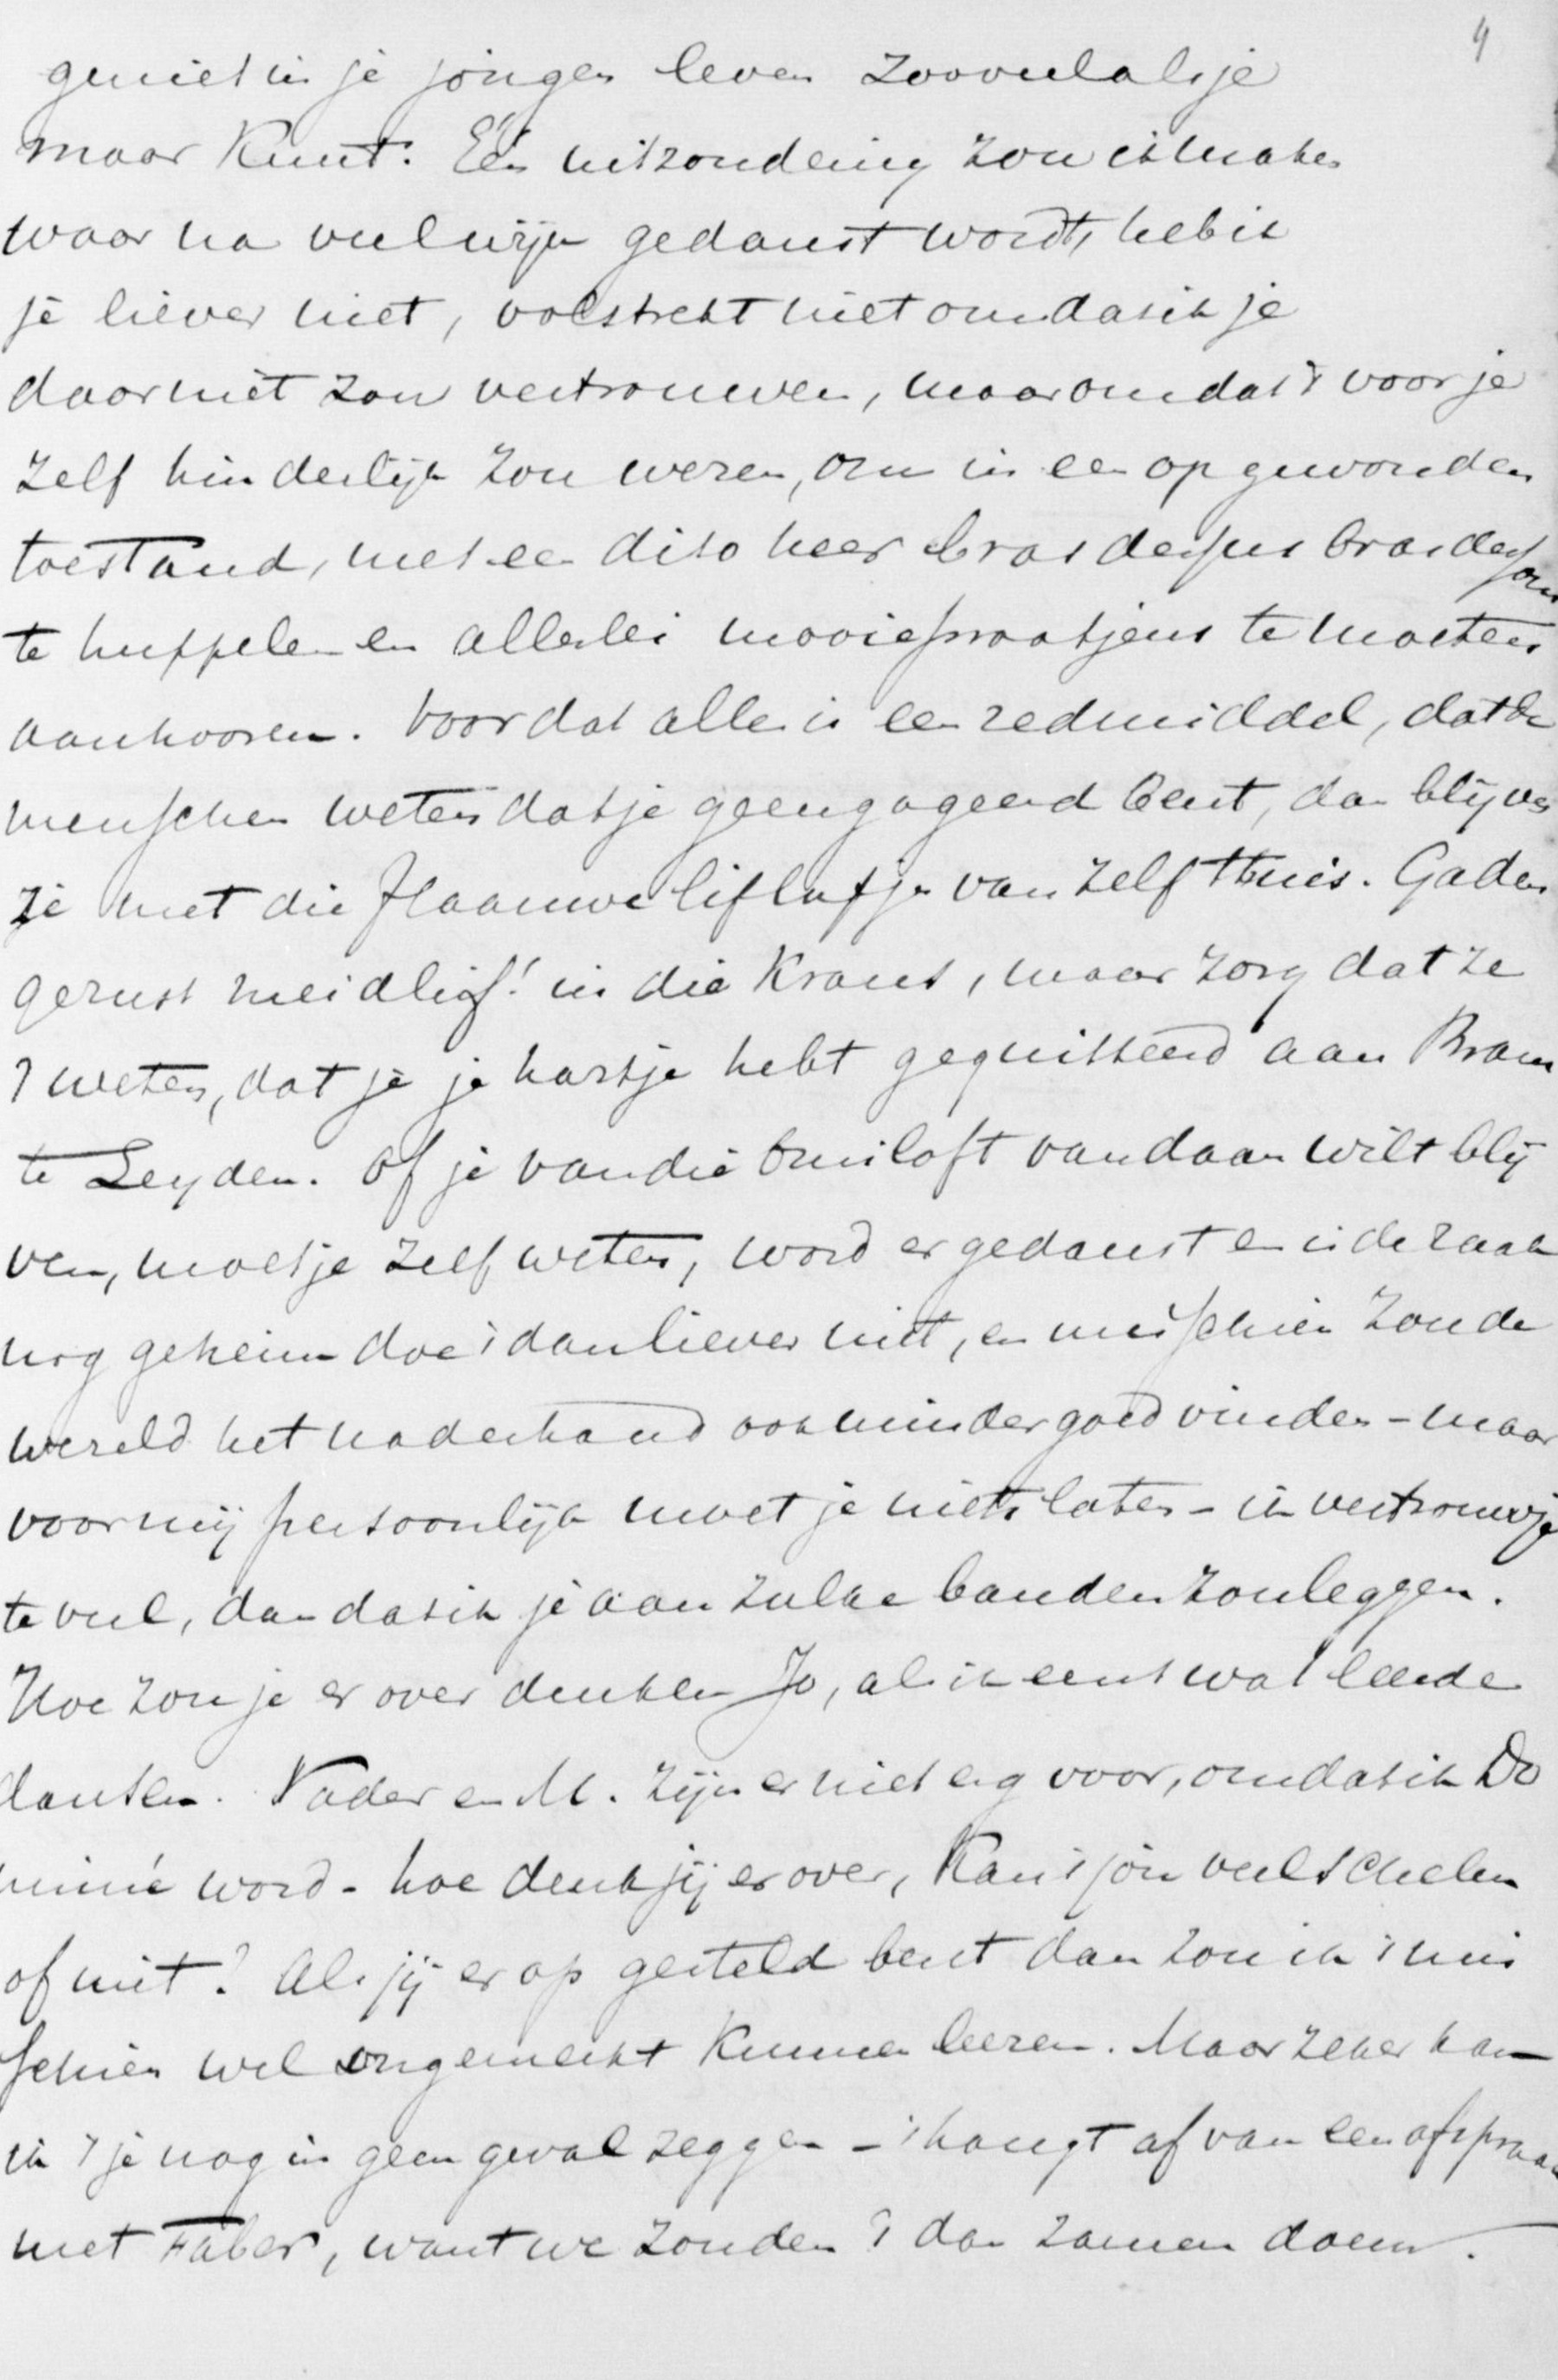 4
geniet in je jonge leven zooveel als je
maar kunt. Eén uitzondering zou ik maken
waar na veel wijn gedanst wordt, heb ik
je liever niet, volstrekt niet omdat ik je
daar niet zou vertrouwen, maar omdat 't voor je
zelf hinderlijk zou wezen, om in een opgewonden
toestand, met een dito heer bras dessus bras dessous
te huppelen en allerlei mooie praatjens te moeten
aanhooren. Voor dat alle is een redmiddel, dat de
menschen weten dat je geengageerd bent, dan blijven
ze met die flaauwe liflafjes van zelf thuis. Ga dus
gerust meidlief! in die Krans, maar zorg dat ze
't weten, dat je je hartje hebt gequitteerd aan Bram
te Leyden. Of je van die bruiloft vandaan wilt blij
ven, moet je zelf weten, word er gedanst en is de zaak
nog geheim doe 't dan liever niet, en misschien zou de
wereld het naderhand ook minder goed vinden - maar
voor mij persoonlijk moet je niets laten - ik vertrouw je
te veel, dan dat ik je aan zulke banden zou leggen.
Hoe zou je er over denken Jo, als ik eens wat leerde
dansen. Vader en M. zijn er niet erg voor, omdat ik Do
miné word - hoe denk jij er over, kan 't jou veel schelen
of niet? Als jij er op gesteld bent dan zou ik 't mis
schien wel ongemerkt kunnen leeren. Maar zeker kan
ik 't je nog in geen geval zeggen - 't hangt af van een afspraak
met Faber, want we zouden 't dan zamen doen.